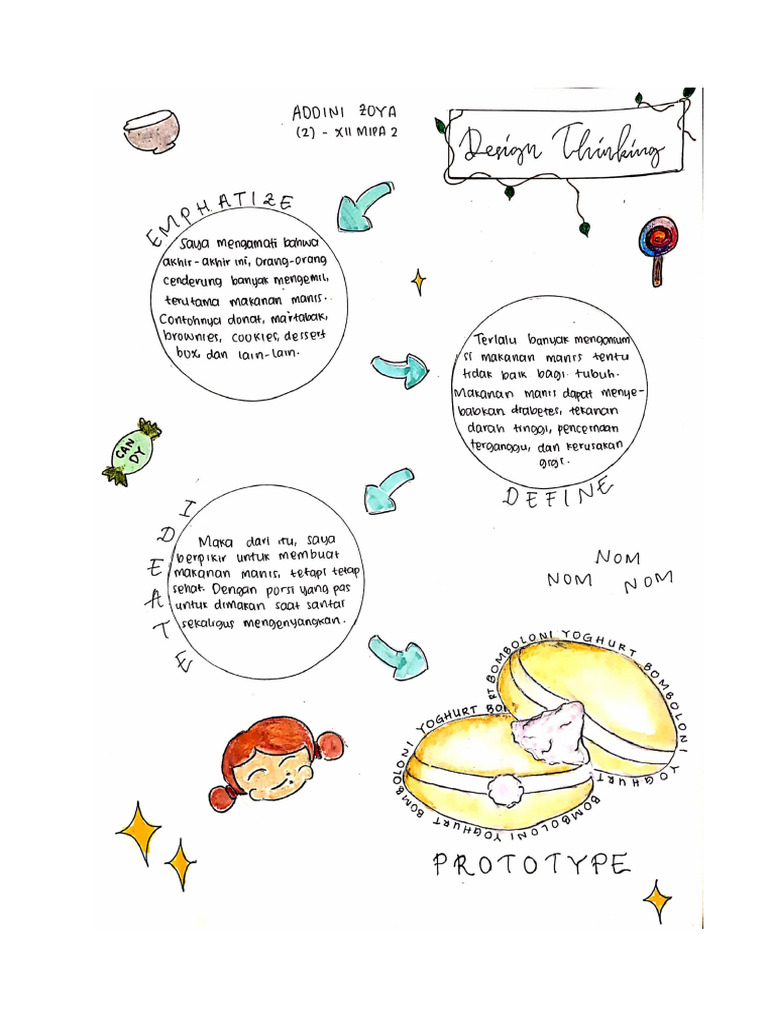 ADDINI ZOYA
(2) - XII MIPA 2
Design Thinking
EMPHATIZE
Saya mengamati bahwa
akhir-akhir ini, orang-orang
cenderung banyak mengemil,
terutama makanan manis.
Contohnya donat, martabak,
brownies, cookies, dessert
box, dan lain-lain.
Terlalu banyak mengonsum
si makanan manis tentu
tidak baik bagi tubuh.
Makanan manis dapat menye-
babkan diabetes, tekanan
darah tinggi, pencernaan
terganggu, dan kerusakan
gigi.
DEFINE
CAN
DY
IDEATE
Maka dari itu, saya
berpikir untuk membuat
makanan manis, tetapi tetap
sehat. Dengan porsi yang pas
untuk dimakan saat santai
sekaligus mengenyangkan.
NOM
NOM NOM
BOMBOLONI YOGHURT BOMBOLONI YOGHURT
BOMBOLONI YOGHURT BOMBOLONI YOGHURT
PROTOTYPE